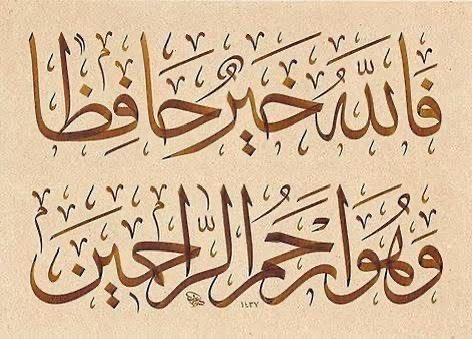 فَاللَّهُ خَيْرٌ حَافِظًا
وَهُوَ أَرْحَمُ الرَّاحِمِينَ
١٤٣٧